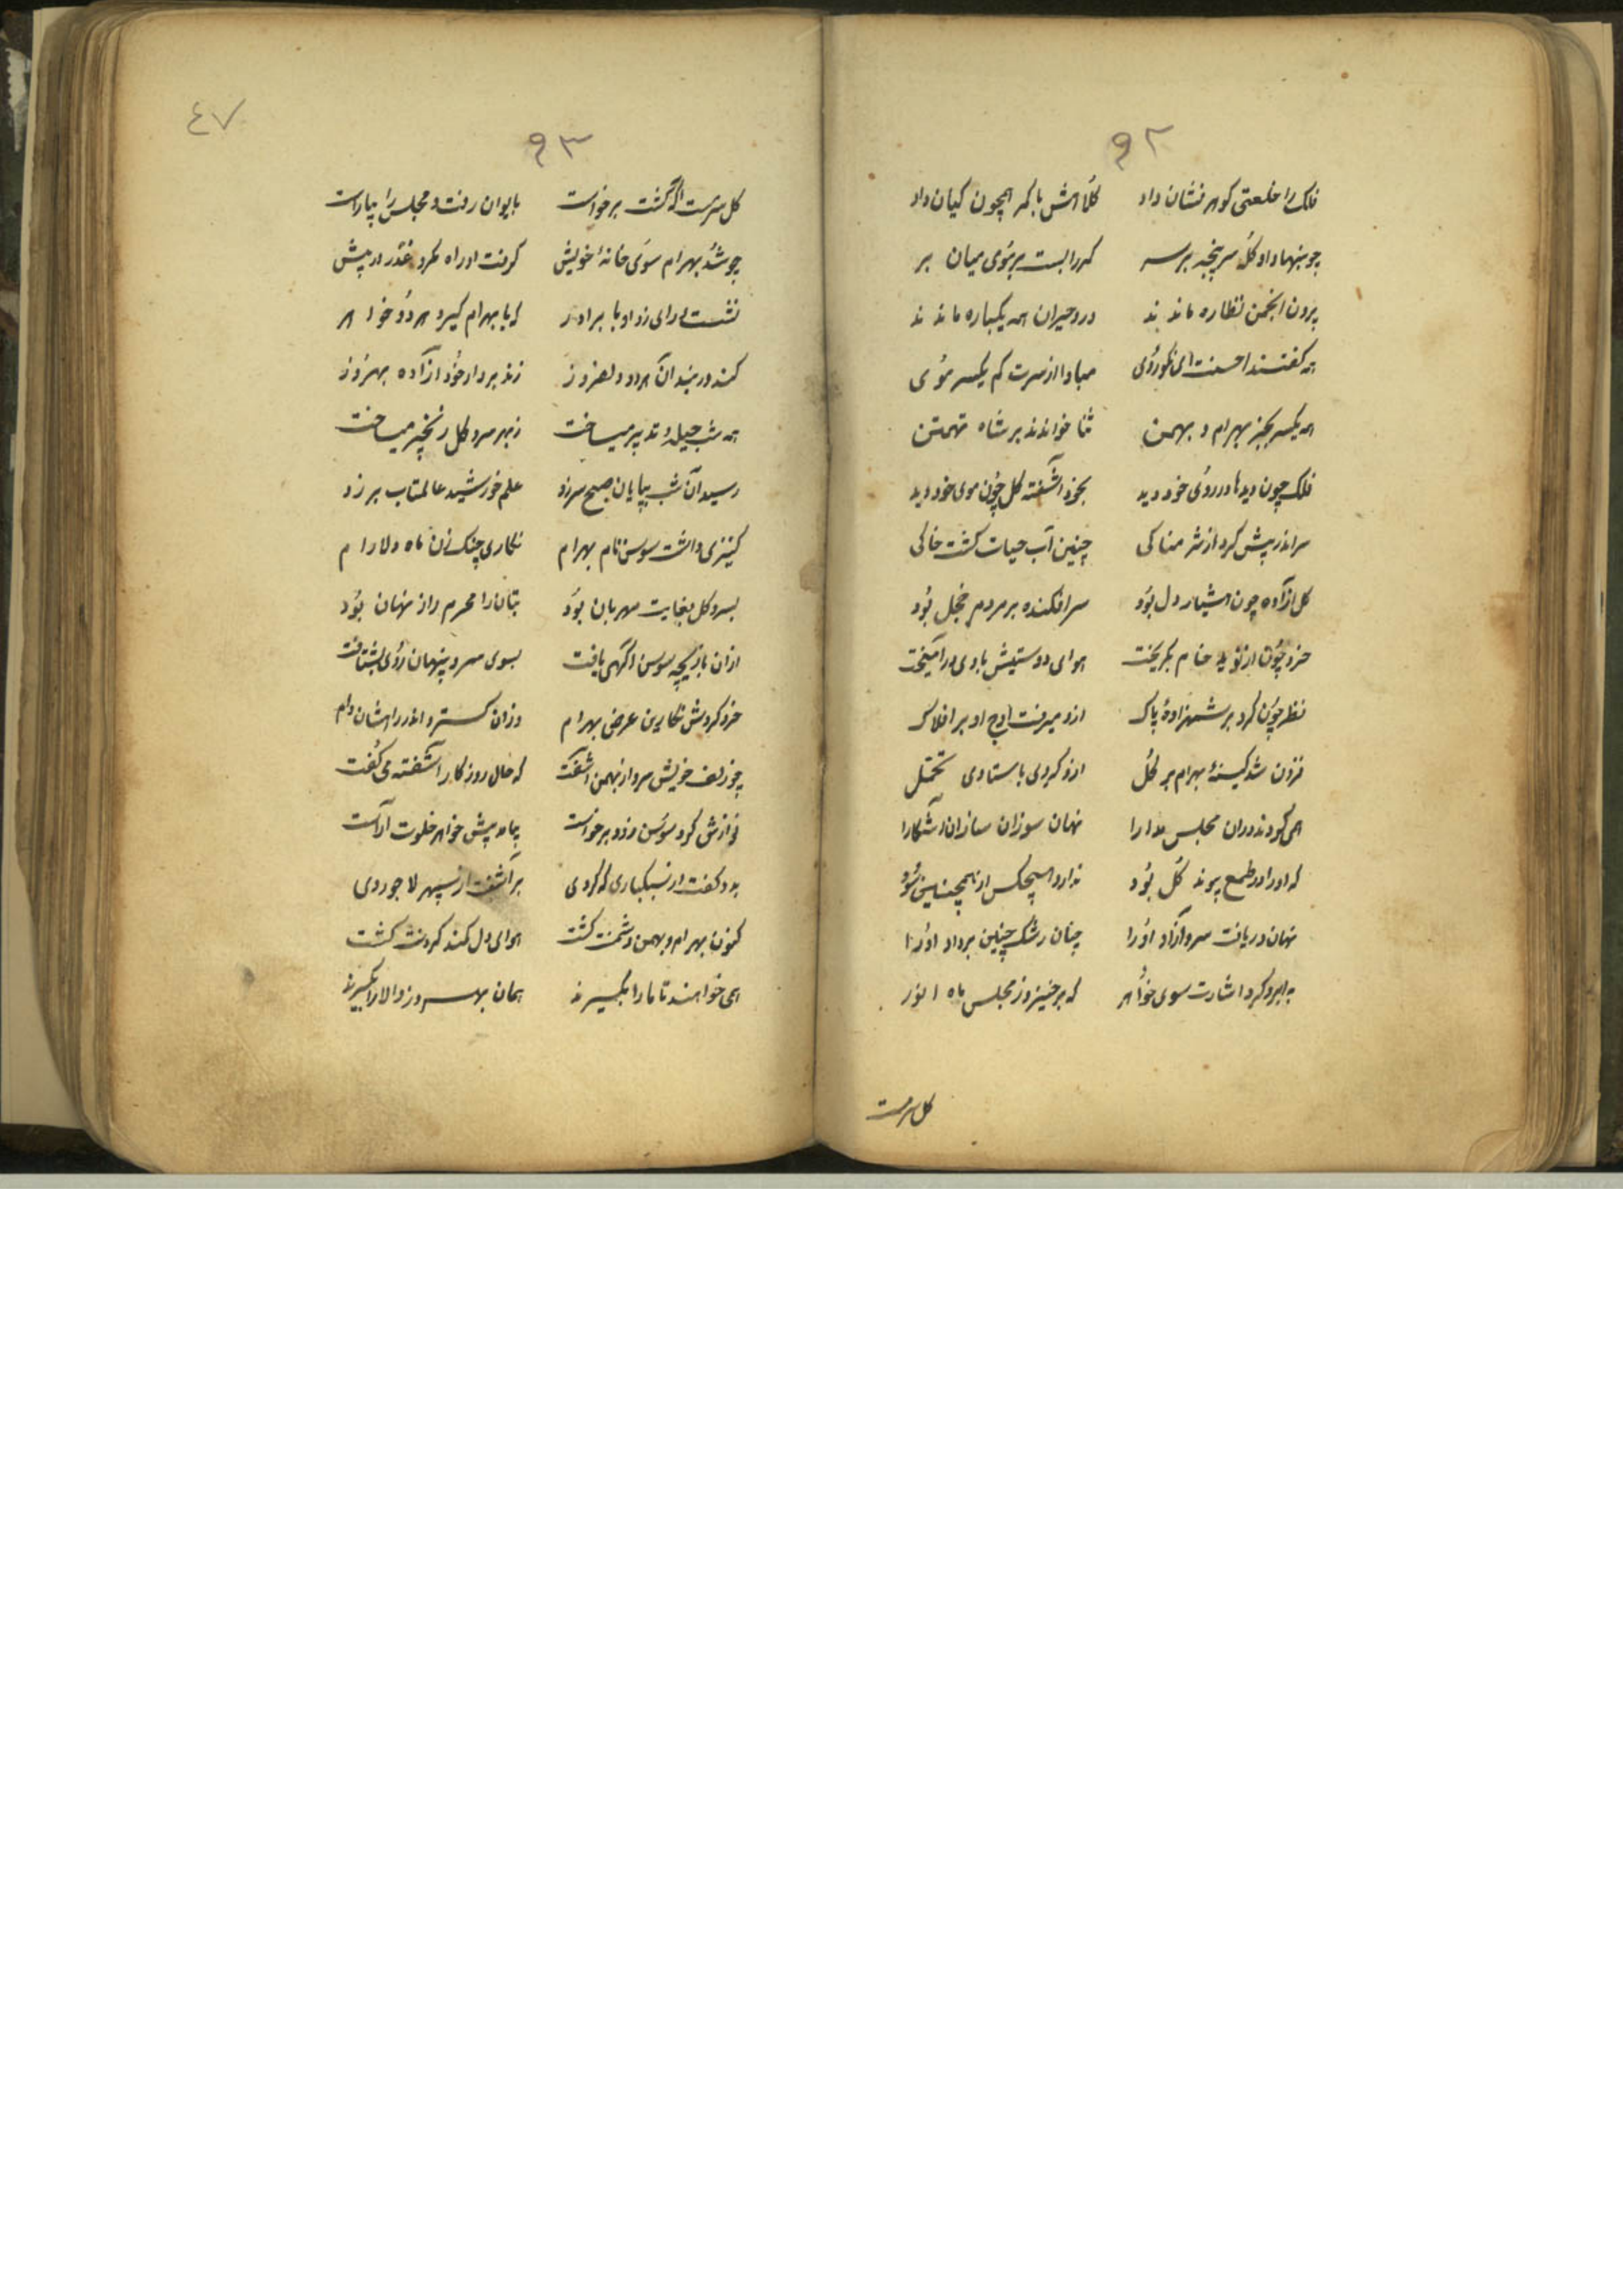 ۹۲
فلک را خلعتی کوهر نشان داد کلاهش با کمر همچون کیان داد
چو بنهاد او کله سرپنجه بر سر کمر را بست بر موی میان بر
برون انجمن نظاره ماندند درو حیران همه یکباره ماندند
همه کفتند احسنت ای نکوروی مبادا از سرت کم یکسر موی
همه یکسر بجز بهرام و بهمن ثنا خواندند بر شاه تهمتن
فلک چون دیدها در روی خود دید بخود آشفته کل چون موی خود دید
سر اندر پیش کرد از شرمناکی چنین آب حیات کشت خاکی
کل آزاده چون هشیار دل بود سر افکنده بر مردم خجل بود
خرد چون از خام بکریخت هوای دوستیش با وی در آمیخت
نظر چون کرد بر شهزادهٔ پاک ازو میرفت اوج او بر افلاک
فزون شد کینهٔ بهرام بر کل ازو کردی باستادی تحمل
همی کردند دران مجلس مدارا نهان سوزان سازان آشکارا
که او را در طمع پیوند کل بود ندارد هیچکس از همچنین سود
نهان دریافت سرو آزاد او را چنان رشک چنین برداد او را
به ابرو کرد اشارت سوی خواهر که برخیز و ز مجلس ماه انور
کل سرمست
٤٧
۹۳
کل سرمست اکه کشت برخواست بایوان رفت و مجلس را بیاراست
چو شد بهرام سوی خانهٔ خویش کرفت او راه مکر و غدر در پیش
نشست و رای زد او با برادر که با بهرام کیرد هر دو خواهر
کند در بند آن هر دو دلفروز زند بر دار خود آزاده بهروز
همه شب حیله و تدبیر میساخت ز بهر سرو کل زنجیر میساخت
رسید آن شب بپایان صبح سر زد علم خورشید عالمتاب بر زد
کنیزی داشت سوسن نام بهرام نکاری چنک زن ماه دلارام
بسرو کل بغایت مهربان بود بتان را محرم راز نهان بود
ازان بازیچه سوسن آکهی یافت بسوی سرو پنهان روی بشتافت
خرد کردش نکارین عرض بهرام وزان کسترد اندر راهشان دام
چو زلف خویش سرو از بهمن آشفت که حال روزکار آشفته می کفت
نوازش کرد سوسن را و برخواست بیامد پیش خواهر خلوت آراست
بدو کفت از سبکباری که کردی برآشفت از سپهر لاجوردی
کنون بهرام و بهمن دشمنت کشت هوای دل کمند کردنت کشت
همی خواهند تا ما را بکیرند همان بهروز والا را بکیرند